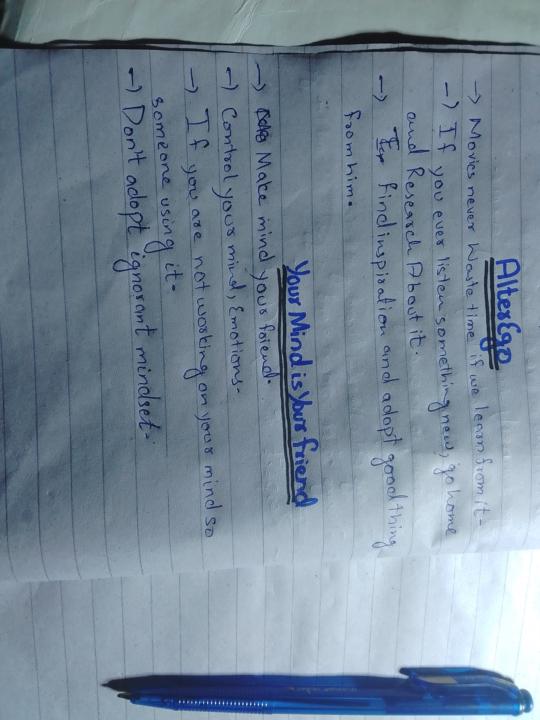 Alter Ego
→ Movies never waste time if we learn from it-
→ If you ever listen something new, go home
and Research About it.
→ Find inspiration and adopt good thing
from him.
Your Mind is Your friend
→ Make mind your friend.
→ Control your mind, Emotions.
→ If you are not working on your mind so
someone using it.
→ Don't adopt ignorant mindset.